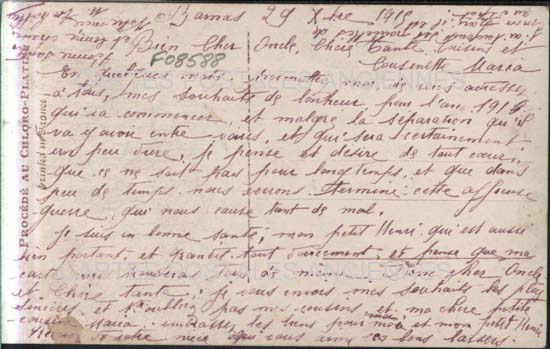 Bamas 29 Xbre 1915
Bien Cher Oncle, Chère Tante, Cousins et
Cousinette Maria
F08588
En quelques mots permettez moi de vous adresser
à tous, mes souhaits de bonheur pour l'an 1916
qui va commencer, et malgré la séparation qu'il
va y avoir entre nous, et qui sera certainement
un peu dure, je pense et désire de tout cœur,
que ce ne soit pas pour longtemps, et que dans
peu de temps nous verrons terminé cette affreuse
guerre, qui nous cause tant de mal.
Je suis en bonne santé, mon petit Henri qui est aussi
bien portant, et grandit tout doucement, et pense que ma
carte vous trouvera tous de même, cher Oncle
et Chère tante, je vous envoie mes souhaits les plus
sincères, et n'oubliez pas mes cousins et ma chère petite
cousine Maria, embrassez les biens pour moi et mon petit Henri
Recevez de votre nièce qui vous aime ces bons baisers.
PROCÉDÉ AU CHLORO-PLATINE
CARTES POSTALES ANCIENNES
CARTES POSTALES ANCIENNES